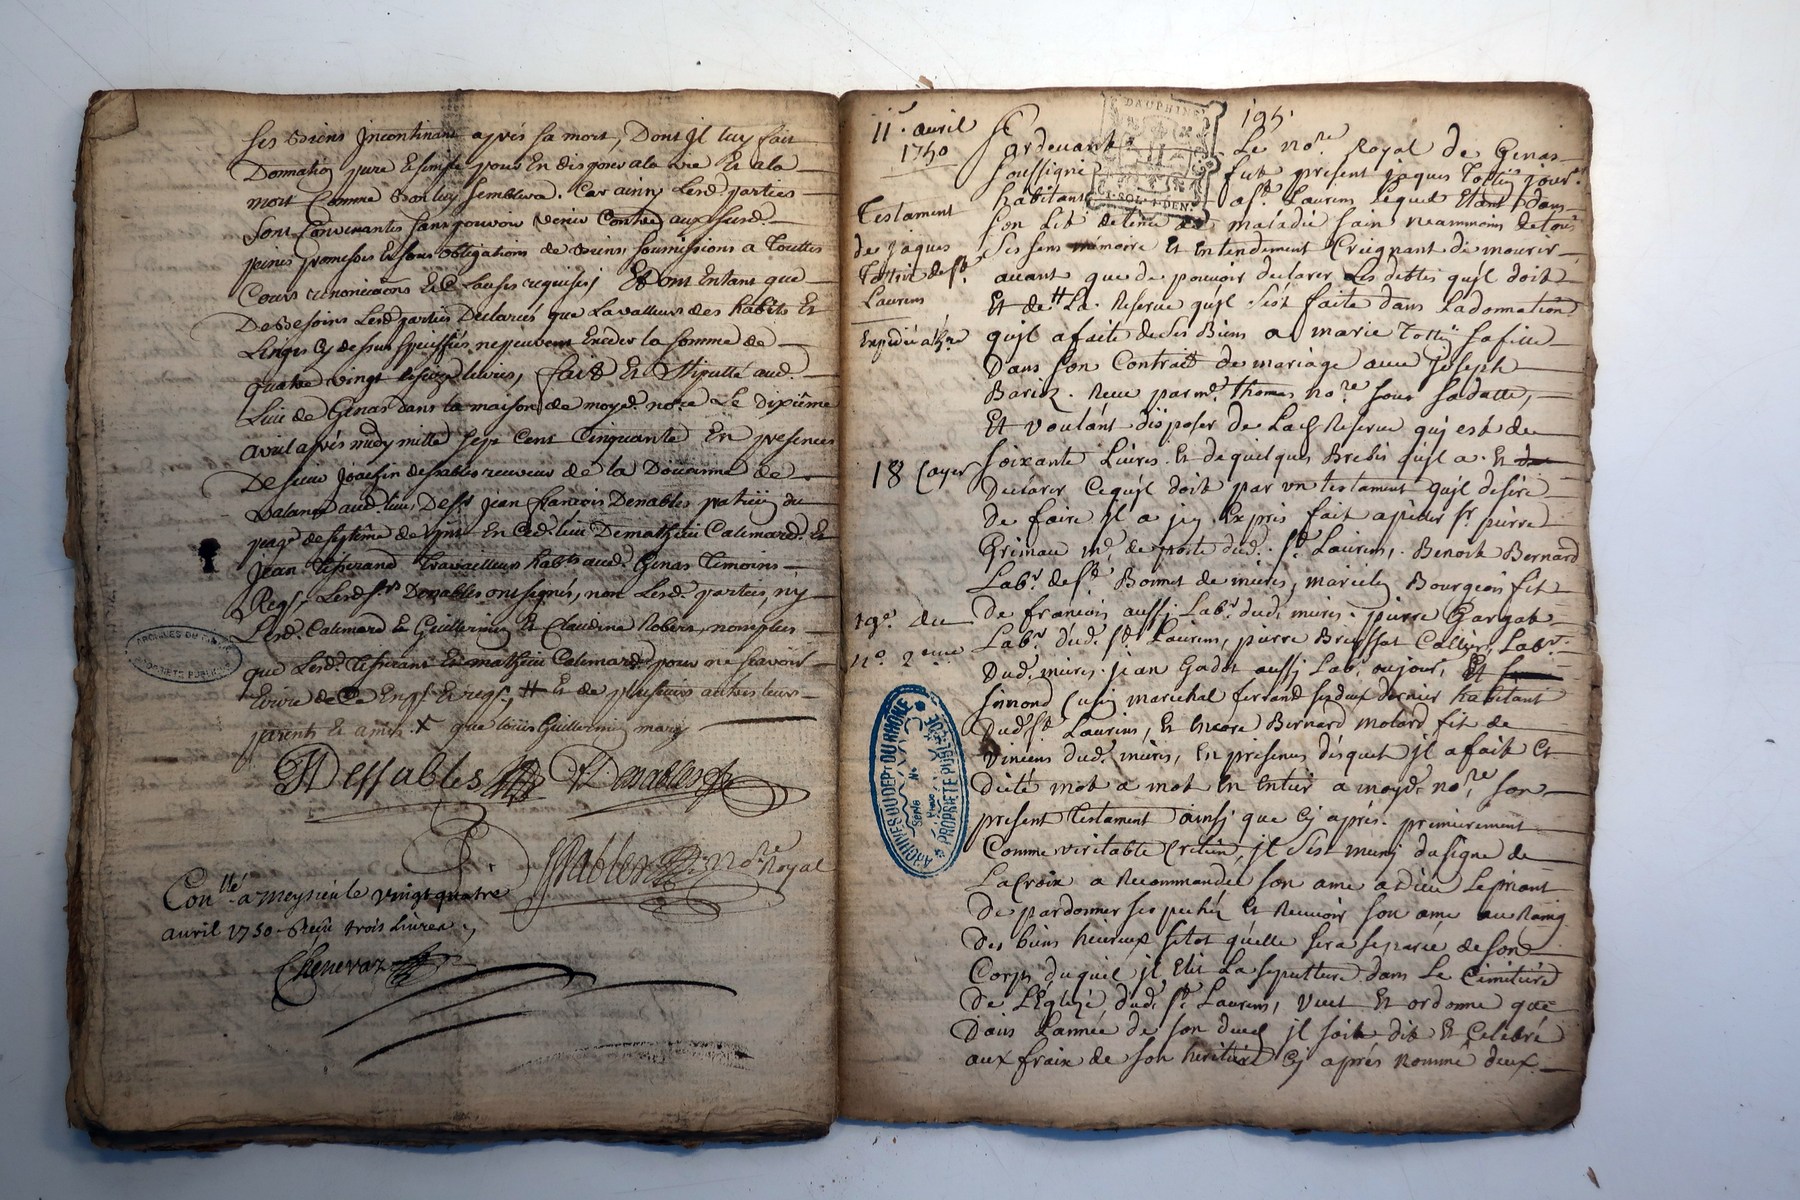 ses biens Incontinant aprés sa mort, Dont Il luy fait
Donnation pure Et simple pour En disposer a la vie Et a la
mort Comme bon luy semblera. Car ainsy Lesd. parties
sont Convenantes sans pouvoir venir Contre aux susd.
peines promesses Et sous obligations de biens, soumissions a Touttes
Cours renonciaons Et Clauses requises, Et ont Entant que
De besoins Lesd. parties Declarées que La valleur des habits Et
Linges Cy dessus speciffiés ne peuvent Exceder la somme de
quatre vingt livres, fait Et Stipullé aud.
Lieu de Genas dans la maison de moyd. nore Le dixiéme
avril aprés midy mille sept Cent Cinquante En presences
De sieur Joachin dessables receveur de la Doüanne de
aud. lieu, De sr. jean françois Denables
En Ced. lieu De mathieu Calemard. Et
jean Tisserand Travailleurs habts. aud. Genas Temoins
Reqs, Lesd. srs. Denables ont signés, non Lesd. parties, ny
Lesd. Calemard Guillermin Et Claudine Robert, non plus
que Lesd. Tisserant Et mathieu Calemard pour ne sçavoir
Ecrire de Ce Enqs. Et reqs, # Et de plusieurs autres leurs
parents Et amis. X que loüis Guillermin mary
Dessables Denables
nore Royal
Conllé. a Meysieu le vingt quatre
avril 1750. Reçu trois Livres.
Chenevaz
ARCHIVES DU
PROPRIETE PUBLIQUE
195.
11e. avril
1750
Testament
de jaques
de St.
Laurens
Expedié
18 Cayer
19e. du
11e. 2eme
DAUPHINE
1. SOL. 4. DEN.
ARCHIVES DU DEPT DU RHONE
Série
No
PROPRIETE PUBLIQUE
Pardevant Le nore. Royal de Genas
soussigné fut present jaques jour.
habitant a St. Laurens Lequel Etant dans
son Lit detenu de maladie sain neammoins de tous
ses sens mémoire Et Entendement Creignant de mourir
avant que de pouvoir declarer Les debtes quil doit
Et de # La Reserve quil s'est faite dans La donnation
quil a faite de ses Biens a marie sa fille
Dans son Contrait de mariage avec Joseph
Reçu par me. Thomas nore. sous sa datte,
Et voulant disposer de Lad. Reserve qui est de
soixante Livres. Et de quelques Brebis quil a. Et
Declarer Ce quil doit par un testament quil desire
De faire Il a jcy Exprés fait apeller sr. pierre
Grimau md. de poste dud. St. Laurens, Benoit Bernard
Labr. de St. Bonnet de mures, Bourgeois fils
de francois aussi Labr. dud. mures. pierre Gargat
Labr. dud. St. Laurens, pierre Labr.
Dud. mures. jean Gadot aussi Lab. Et
simond Cusin marechal ferrand dernier habitant
Dud. St. Laurens, Et Encore Bernard molard fils de
Vincens dud. mures, En presences desquels jl a fait Et
dicté mot a mot En Entier a moyd. nore. son
present Testament ainsi que Cy aprés. premierement
Comme veritable Cretien, jl s'est muni du signe de
La Croix a Recommandé son ame a dieu Le priant
De pardonner ses pechéz Et Recevoir son ame au Rang
Des biens heureux sitot quélle sera separée de son
Corps duquel jl Elit La sepulture dans Le Cimitiere
De L'Eglize dud. St. Laurens, Veut Et ordonne que
Dans L'année de son decez jl soit dit Et Celebré
aux fraix de son heritiere Cy aprés Nommé deux